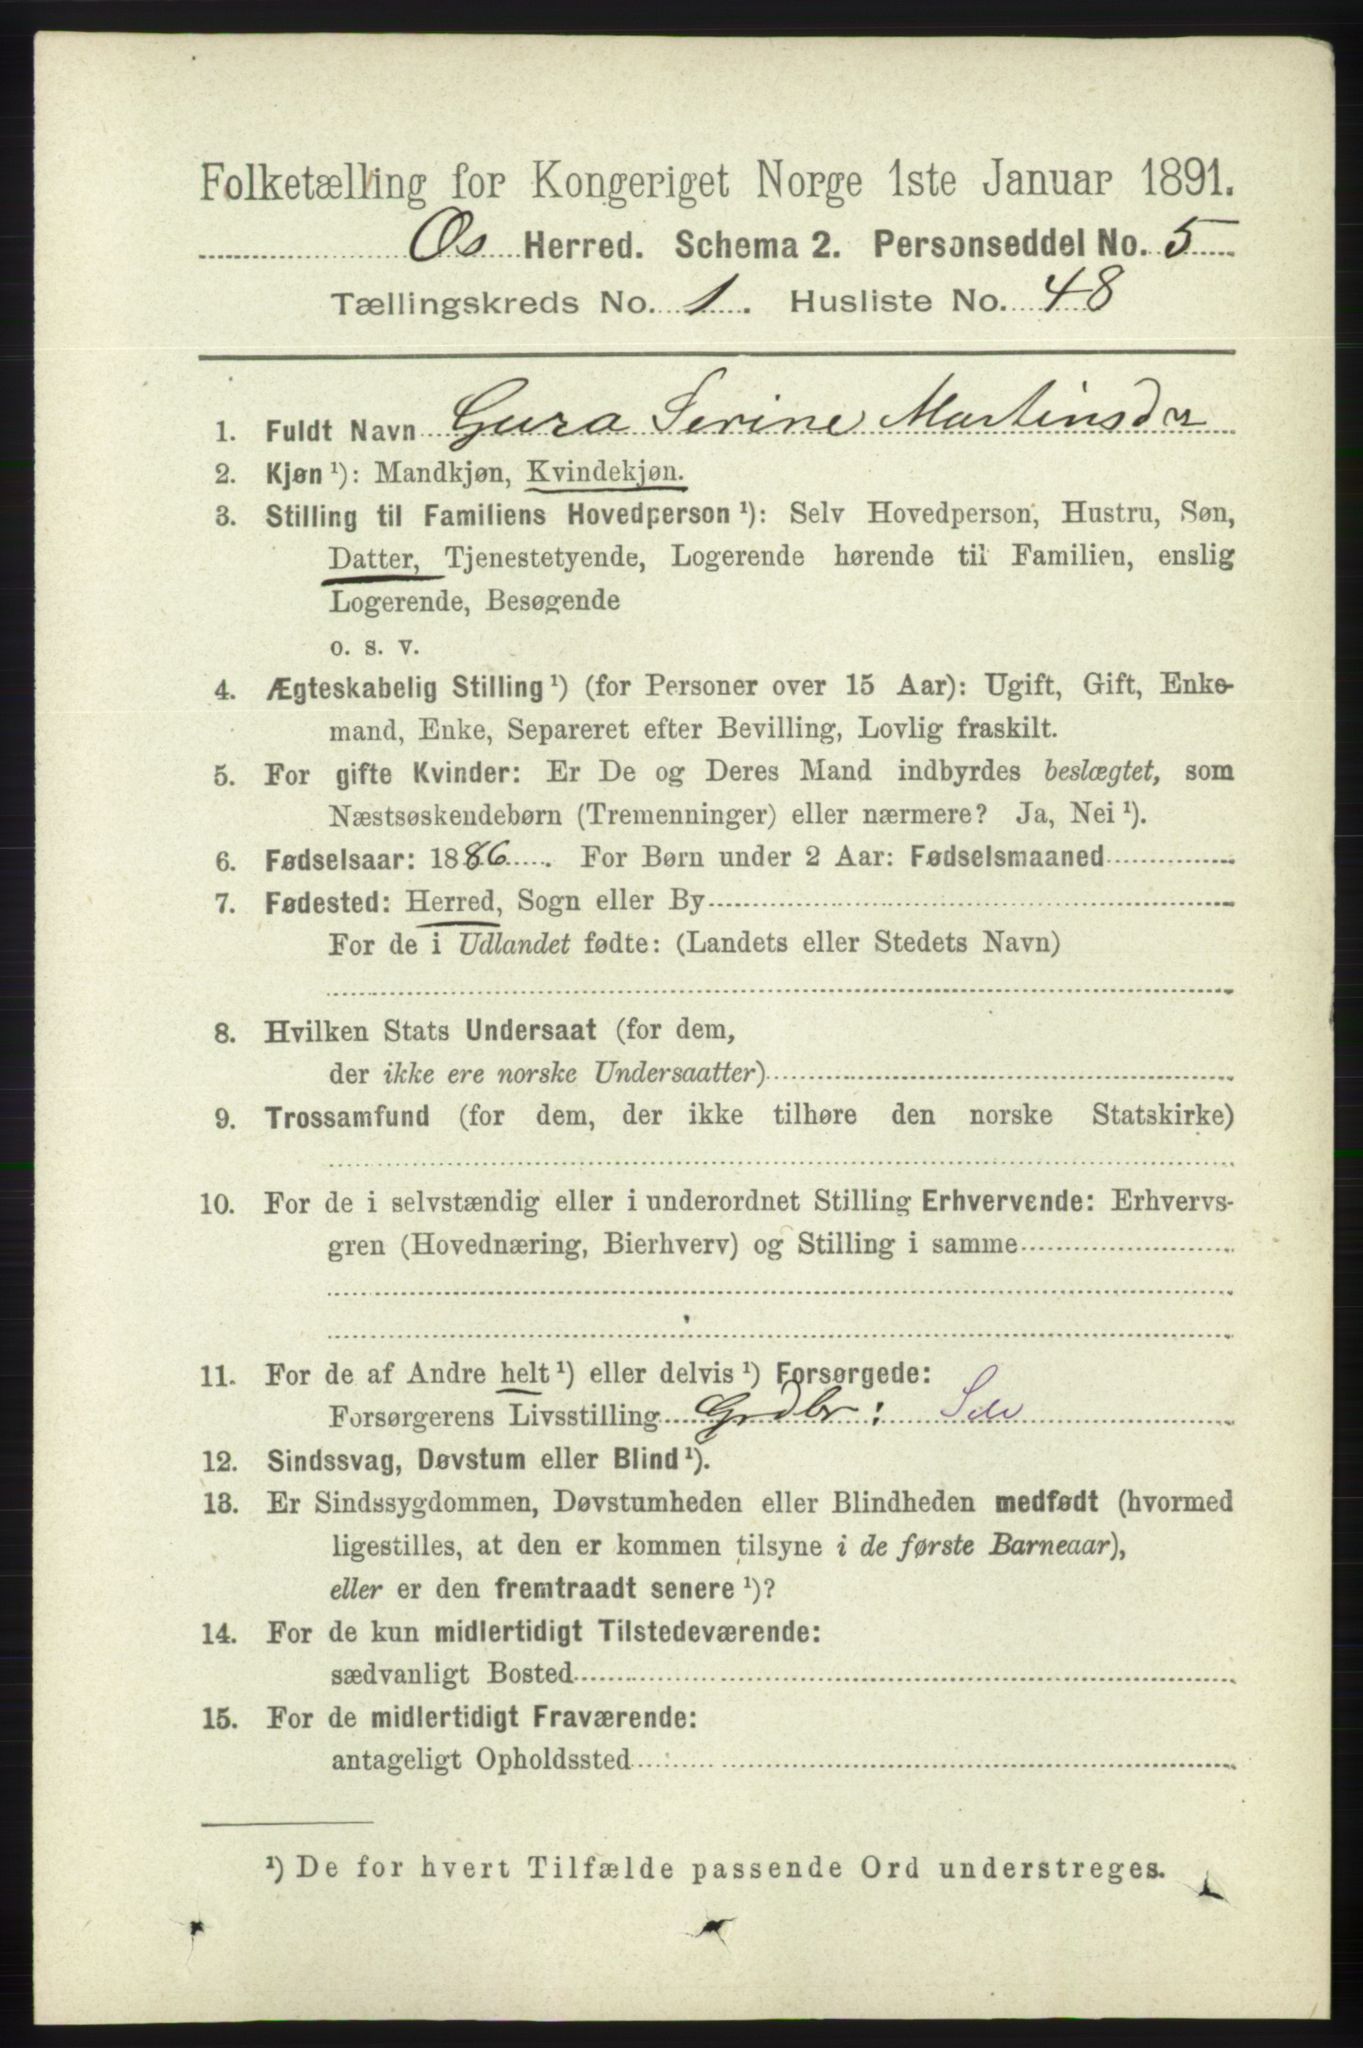 Folketælling for Kongeriget Norge 1ste Januar 1891.
Os Herred. Schema 2. Personseddel No. 5
Tællingskreds No. 1. Husliste No. 48
1. Fuldt Navn Gura Serine Martinsdr
2. Kjøn ¹): Mandkjøn, Kvindekjøn.
3. Stilling til Familiens Hovedperson ¹): Selv Hovedperson, Hustru, Søn,
Datter, Tjenestetyende, Logerende hørende til Familien, enslig
Logerende, Besøgende
o. s. v.
4. Ægteskabelig Stilling ¹) (for Personer over 15 Aar): Ugift, Gift, Enke-
mand, Enke, Separeret efter Bevilling, Lovlig fraskilt.
5. For gifte Kvinder: Er De og Deres Mand indbyrdes beslægtet, som
Næstsøskendebørn (Tremenninger) eller nærmere? Ja, Nei ¹).
6. Fødselsaar: 1886. For Børn under 2 Aar: Fødselsmaaned
7. Fødested: Herred, Sogn eller By
For de i Udlandet fødte: (Landets eller Stedets Navn)
8. Hvilken Stats Undersaat (for dem,
der ikke ere norske Undersaatter)
9. Trossamfund (for dem, der ikke tilhøre den norske Statskirke)
10. For de i selvstændig eller i underordnet Stilling Erhvervende: Erhvervs-
gren (Hovednæring, Bierhverv) og Stilling i samme
11. For de af Andre helt ¹) eller delvis ¹) Forsørgede:
Forsørgerens Livsstilling Grdbr:
12. Sindssvag, Døvstum eller Blind ¹).
13. Er Sindssygdommen, Døvstumheden eller Blindheden medfødt (hvormed
ligestilles, at den er kommen tilsyne i de første Barneaar),
eller er den fremtraadt senere ¹)?
14. For de kun midlertidigt Tilstedeværende:
sædvanligt Bosted
15. For de midlertidigt Fraværende:
antageligt Opholdssted
¹) De for hvert Tilfælde passende Ord understreges.